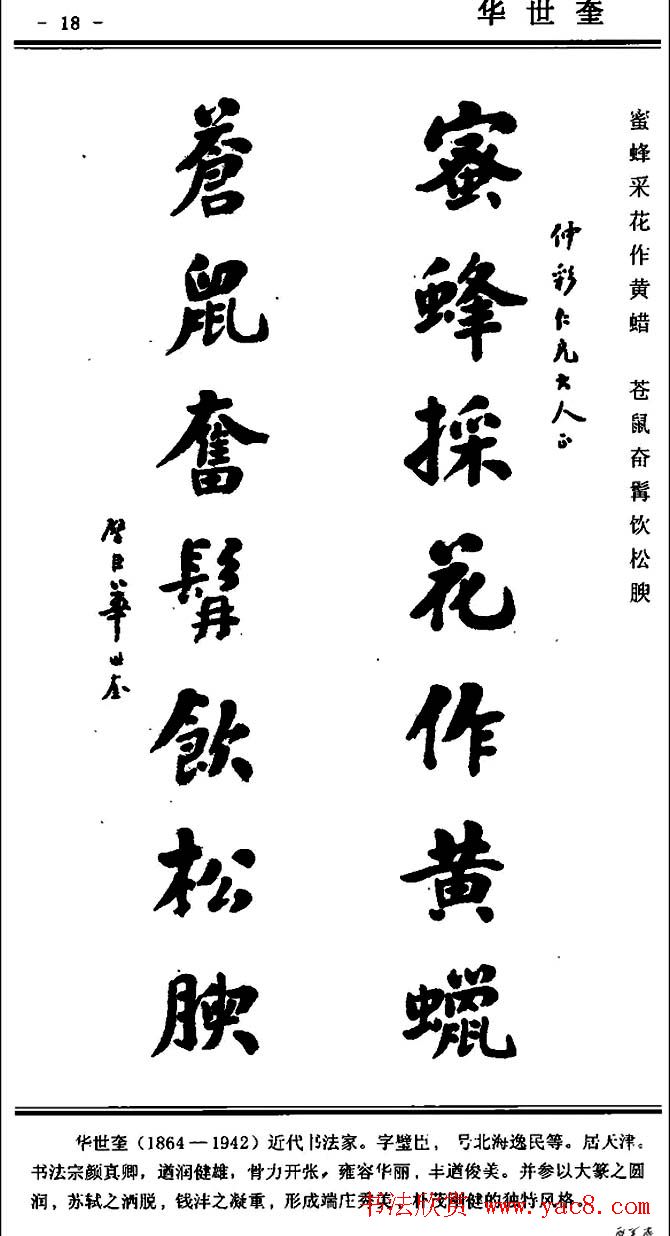 - 18 -
华世奎
蜜蜂采花作黄蜡 苍鼠奋髯饮松腴
仲彩仁兄大人正
蜜蜂採花作黄蠟
蒼鼠奮髯飲松腴
璧臣華世奎
华世奎(1864—1942)近代书法家。字璧臣, 号北海逸民等。居天津。
书法宗颜真卿,遒润健雄,骨力开张,雍容华丽,丰遒俊美。并参以大篆之圆
润,苏轼之洒脱,钱沣之凝重,形成端庄秀美,朴茂刚健的独特风格。
书法欣赏 www.yac8.com